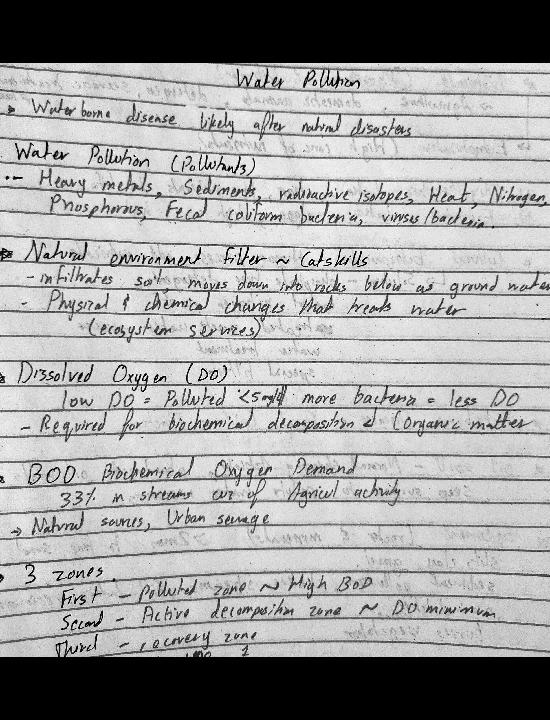 Water Pollution
Waterborne disease likely after natural disasters
Water Pollution (Pollutants)
- Heavy metals, Sediments, radioactive isotopes, Heat, Nitrogen,
Phosphorous, Fecal coliform bacteria, viruses/bacteria.
Natural environment filter ~ Catskills
- infiltrates soil moves down into rocks below as ground water
- Physical & chemical changes that treats water
(ecosystem services)
Dissolved Oxygen (DO)
low DO = Polluted <5 mg/l more bacteria = less DO
- Required for biochemical decomposition (Organic matter
BOD Biochemical Oxygen Demand
33% in streams cuz of Agricul activity.
→ Natural sources, Urban sewage
3 zones.
First - Polluted zone ~ High BOD
Second - Active decomposition zone ~ DO minimum
Third - recovery zone